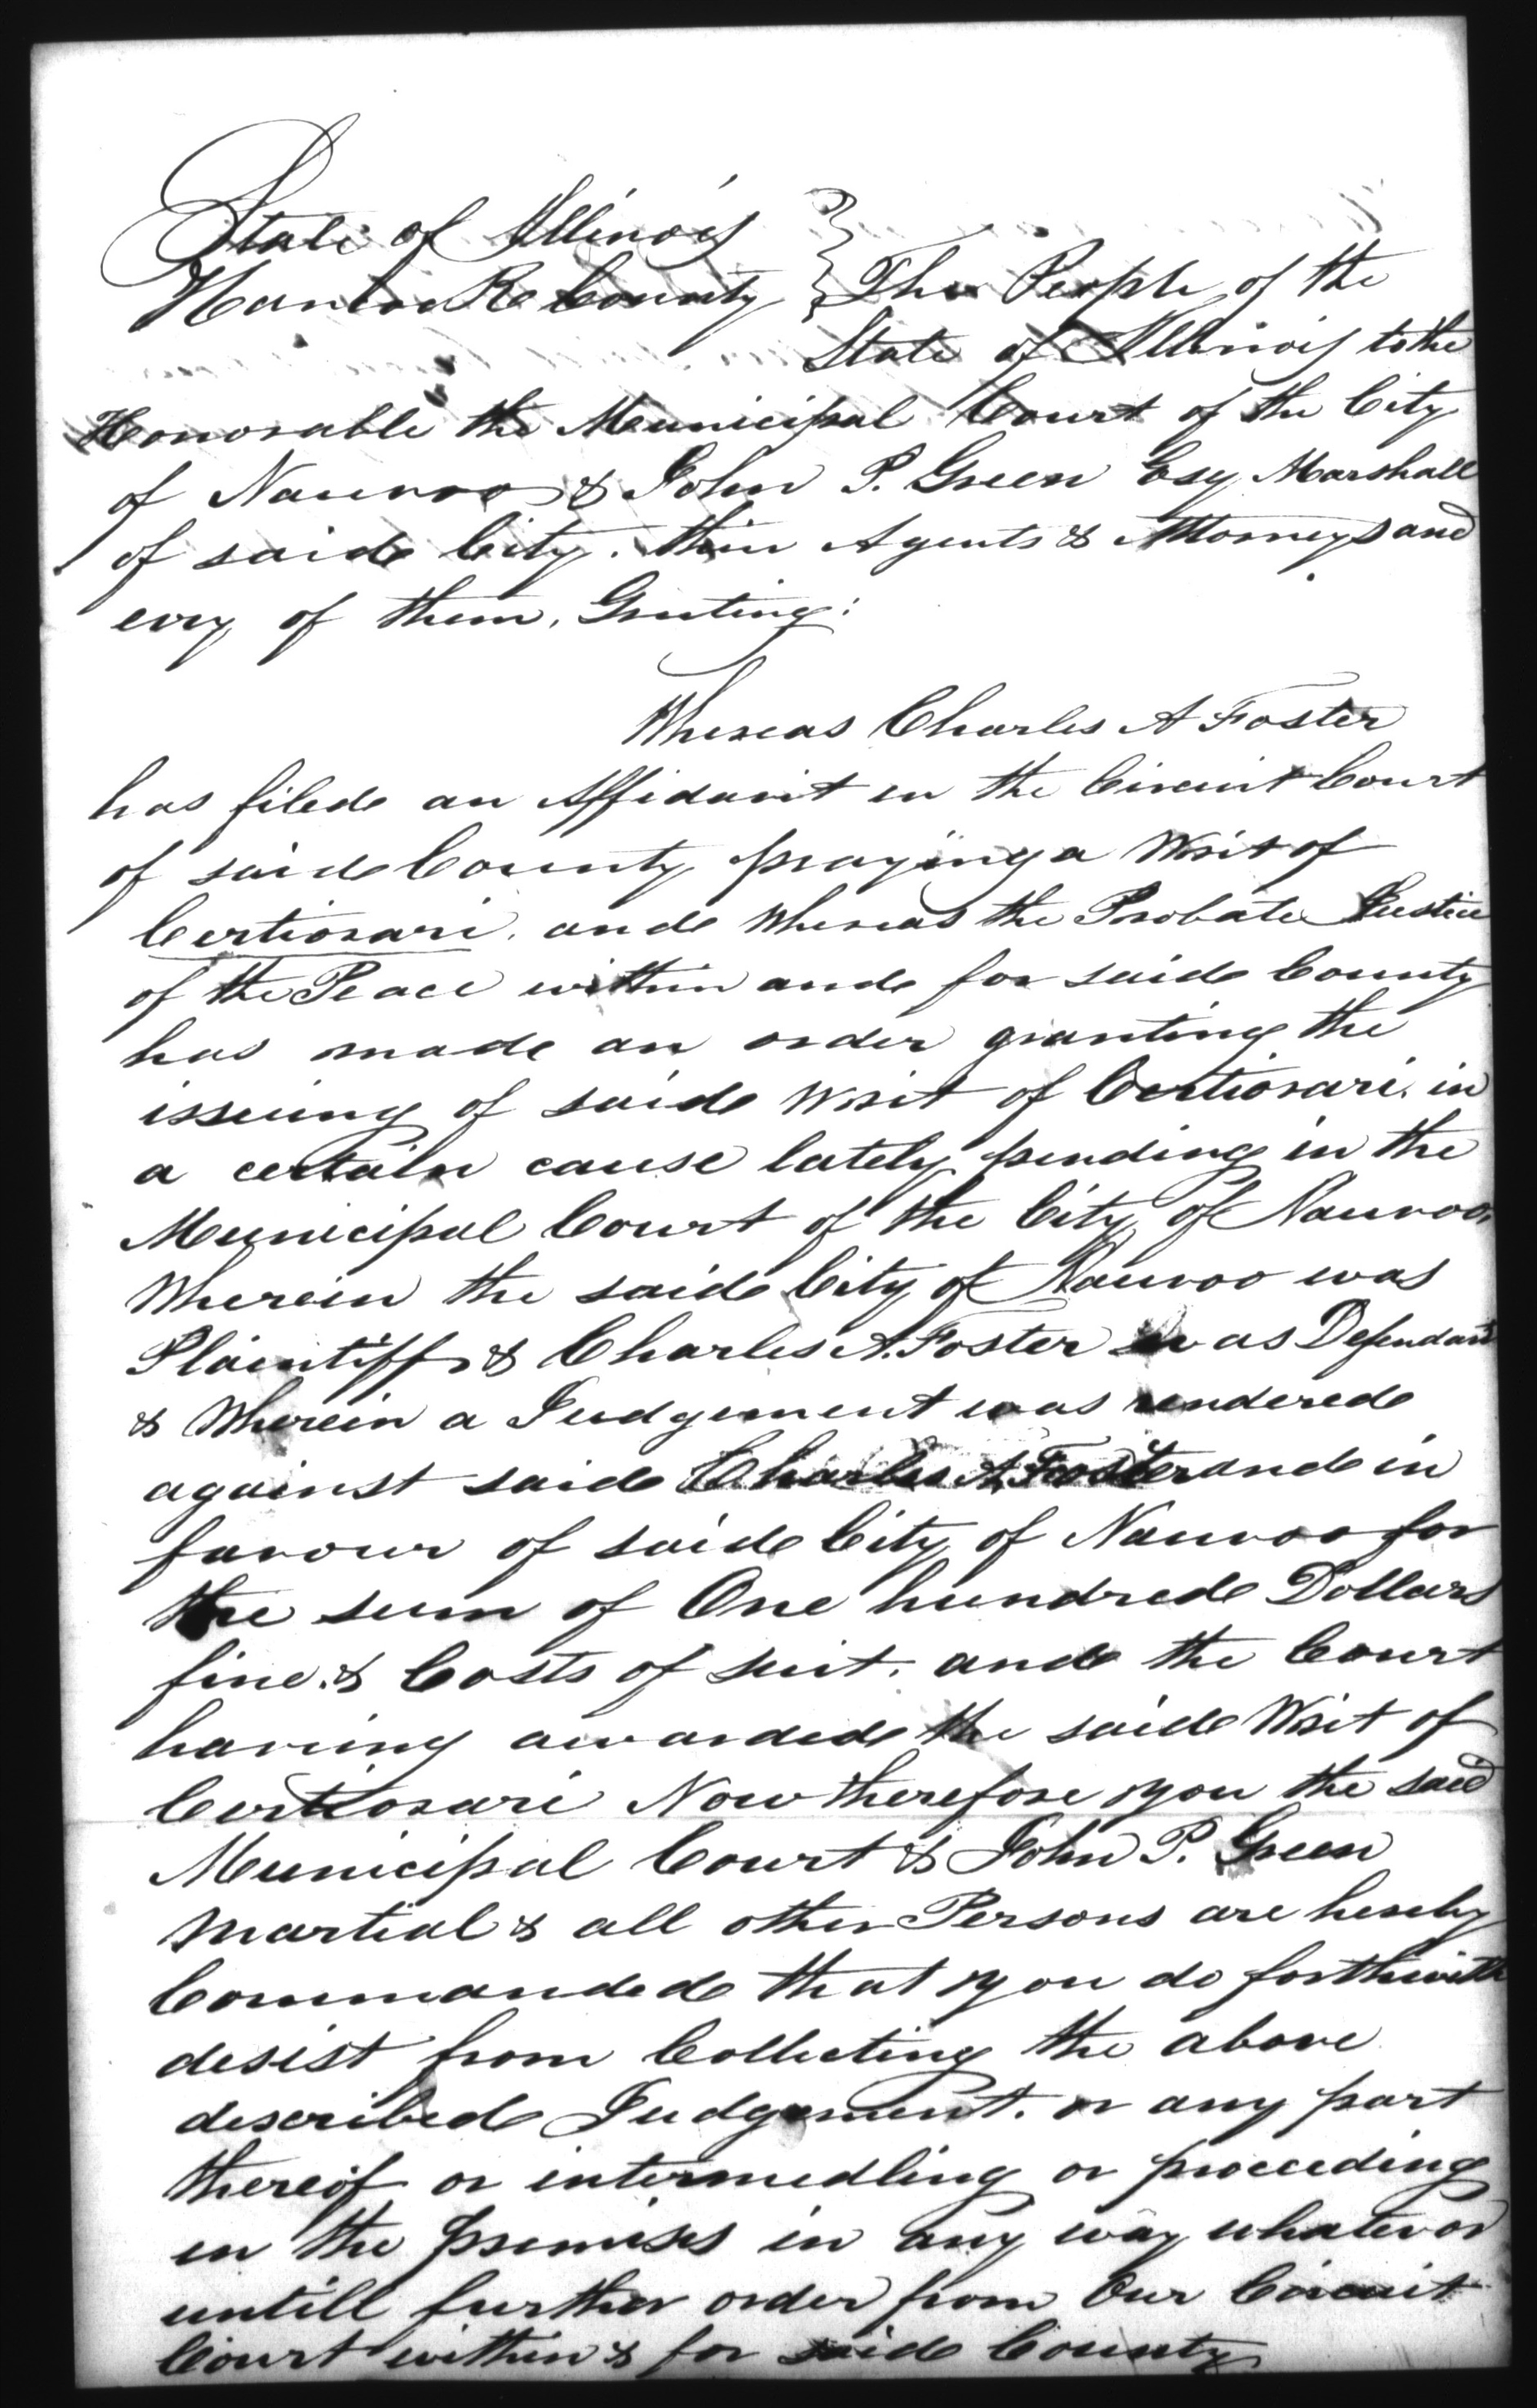 State of Illinois
Hancock County } The People of the
State of Illinois to the
Honorable the Municipal Court of the City
of Nauvoo & John P. Green Esq Marshall
of said City. thier Agents & Attorneys and
evry of them, Greeting:
Whereas Charles A Foster
has filed an Affidavit in the Circuit Court
of said County praying a Writ of
Certiorari, and whereas the Probate Justice
of the Peace within and for said County
has made an order granting the
issuing of said writ of Certiorari, in
a certain cause lately pending in the
Municipal Court of the City of Nauvoo
Wherein the said City of Nauvoo was
Plaintiff & Charles A. Foster was Defendant
& Wherein a Judgement was rendered
against said Charles A. Foster and in
favour of said City of Nauvoo for
the sum of One hundred Dollars
fine. & Costs of suit. and the Court
having awarded the said Writ of
Certiorari Now therefore you the said
Municipal Court & John P. Green
Martial & all other Persons are hereby
Commanded that you do forthwith
desist from Collecting the above
described Judgement. or any part
thereof or intermedling or proceeding
in the premises in any way whatevor
untill further order from Our Circuit
Court within & for said County